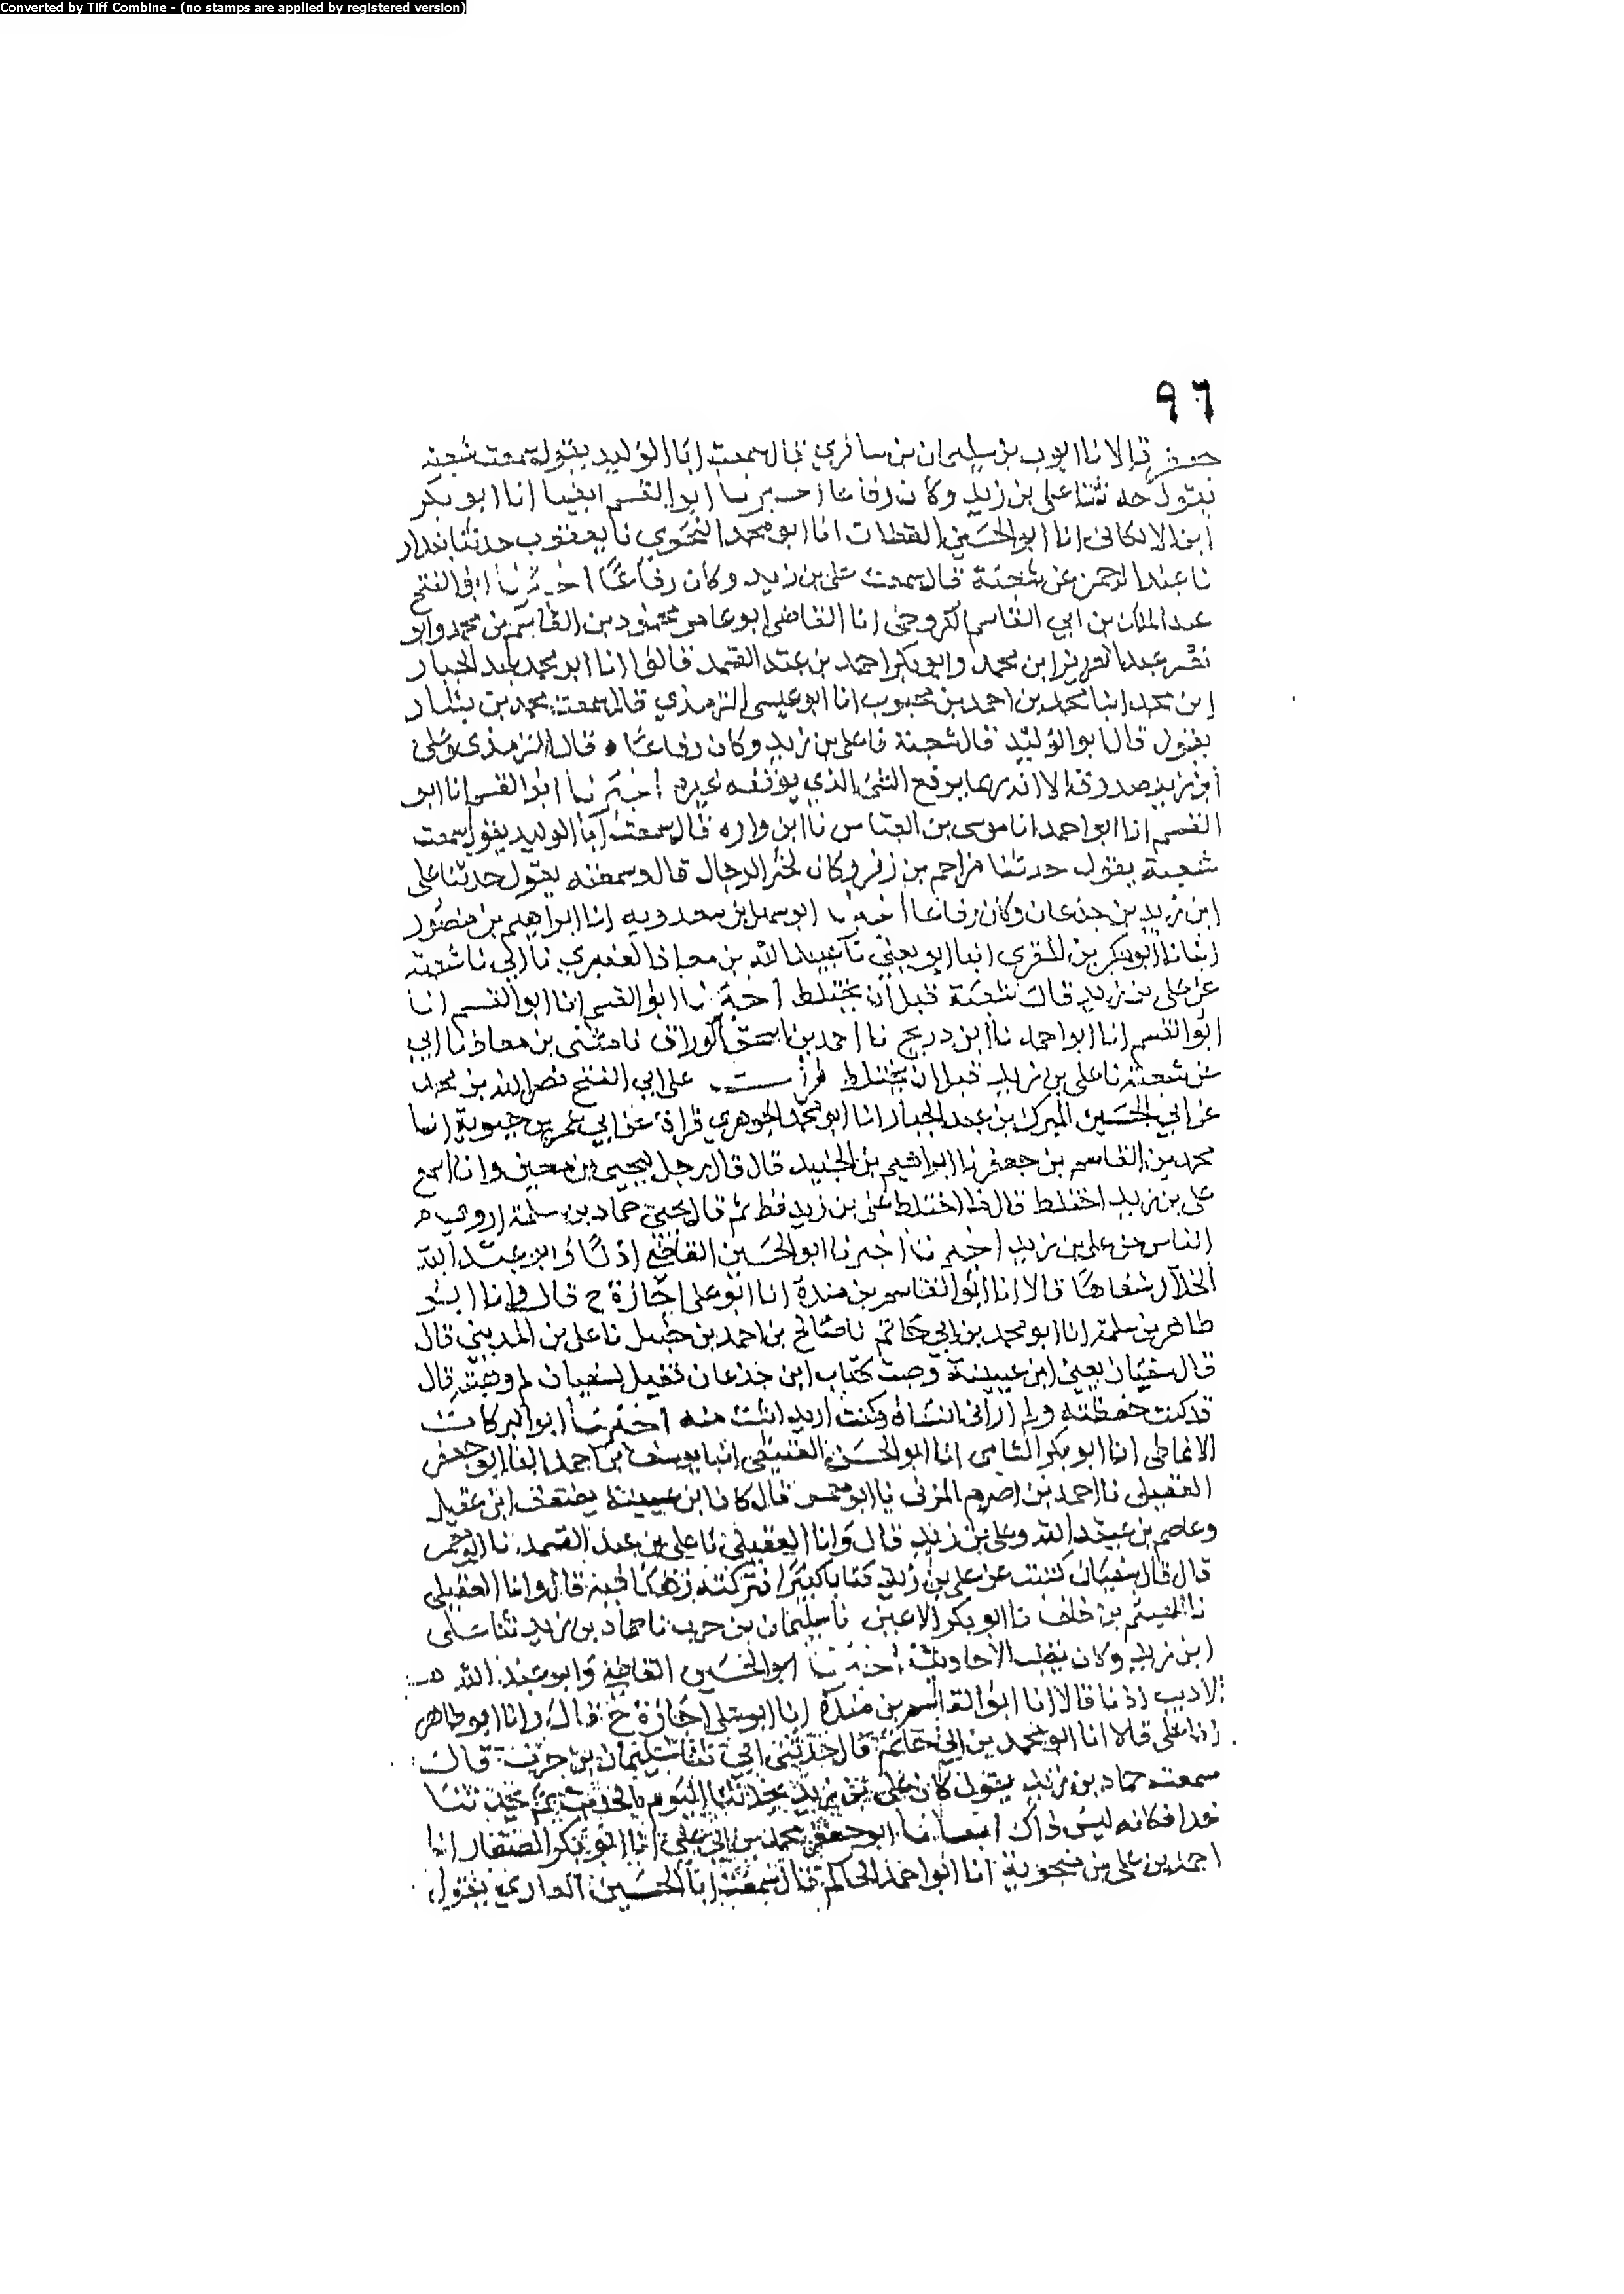 Converted by Tiff Combine - (no stamps are applied by registered version)
٩٦
قالا نا ايوب بن سليمان بن سافري قال سمعت ابا الوليد يقول سمعت شعبة
يقول حدثنا علي بن زيد وكان رفاعا اخبرنا ابو القسم ايضا انا ابو بكر
ابن الالكائى انا ابو الحسين القطان انا ابو محمد النحوي نا يعقوب حدثنا بندار
نا عبد الرحمن عن شعبة قال سمعت علي بن زيد وكان رفاعًا اخبرنا ابو الفتح
عبد الملك بن ابي القاسم الكروخي انا القاضي ابو عامر محمود بن القاسم بن محمد وابو
نصر عبد العزيز ابن محمد وابو بكر احمد بن عبد الصمد قالوا انا ابو محمد عبد الجبار
ابن محمد انبا محمد بن احمد بن محبوب انا ابو عيسى الترمذي قال سمعت محمد بن بشار
يقول قال ابو الوليد قال شعبة نا علي بن زيد وكان رفاعا ٥ قال الترمذي وعلي
ابن زيد صدوق الا انه ربما يرفع الشئ الذي يوقفه غيره اخبرنا ابو القسم انا ابو
القسم انا ابو احمد انا موسى بن العباس نا ابن واره قال سمعت ابا الوليد يقول سمعت
شعبة يقول حدثنا مزاحم بن زفر وكان لخير الرجال قال وسمعته يقول حدثنا علي
ابن زيد بن جدعان وكان رفاعا اخبرنا ابو سهل بن سعدويه انا ابراهيم بن منصور
انا ابو بكر بن المقرى انبا ابو يعلى نا عبيد الله بن معاذ العنبري نا ابي نا شعبة
عن علي بن زيد قال شعبة قبل ان يختلط اخبرنا ابو القسم انا ابو القسم انا
ابو القسم انا ابو احمد نا ابن دريج نا احمد بن اسحق الوراق نا مثنى بن معاذ نا ابي
عن شعبة نا علي بن زيد قبل ان يختلط قرأت على ابي الفتح نصر الله بن محمد
عن ابي الحسين المبرك بن عبد الجبار انا ابو محمد الجوهري قراة عن ابي عمر بن حيوية انبا
محمد بن القاسم بن جعفر نا ابراهيم بن الجنيد قال قال رجل ليحيى بن معين وانا اسمع
علي بن زيد اختلط قال ما اختلط علي بن زيد قط ثم قال يحيى حماد بن سلمة اروى
الناس عن علي بن زيد اخبرنا ابو الحسين القاضي اذنًا وابو عبد الله
الخلال شفاهًا قالا انا ابو القاسم بن مندة انا ابو علي اجازة ح قال وانا ابو
طاهر بن سلمة انا ابو محمد بن ابي حاتم نا صالح بن احمد بن حنبل نا علي بن المديني قال
قال سفيان يعني ابن عيينة وهبت كتاب ابن جدعان فقيل لسفيان لم وهبته قال
قد كنت حفظته ولم ار انى انساه وكنت اريد اتثبت منه اخبرنا ابو البركات
الانماطي انا ابو بكر الشامي انا ابو الحسن العتيقي انبا يوسف بن احمد انبا ابو جعفر
العقيلي نا احمد بن اصرم المزني نا ابو معمر قال كان ابن عيينة يضعف ابن عقيل
وعاصم بن عبيد الله وعلي بن زيد قال وانا العقيلي نا علي بن عبد الصمد نا ابو معمر
قال قال سفيان كتبت عن علي بن زيد كتابا كبيرا فتركته زهدًا فيه قال وانا العقيلي
نا الهيثم بن خلف نا ابو بكر الاعين نا سليمان بن حرب نا حماد بن زيد ثنا علي
ابن زيد وكان يقلب الاحاديث اخبرنا ابو الحسين القاضي وابو عبد الله
الاديب اذنا قالا انا ابو القاسم بن مندة انا ابو علي اجازة ح قال وانا ابو طاهر
انا علي قالا انا ابو محمد بن ابي حاتم قال حدثني ابي ثنا سليمان بن حرب قال
سمعت حماد بن زيد يقول كان علي بن زيد يحدثنا اليوم بالحديث ثم يحدثنا
غدا فكانه ليس ذاك انبانا ابو جعفر محمد بن ابي علي انا ابو بكر الصفار انا
احمد بن علي بن منجوية انا ابو احمد الحاكم قال سمعت ابا الحسين الغازي يقول